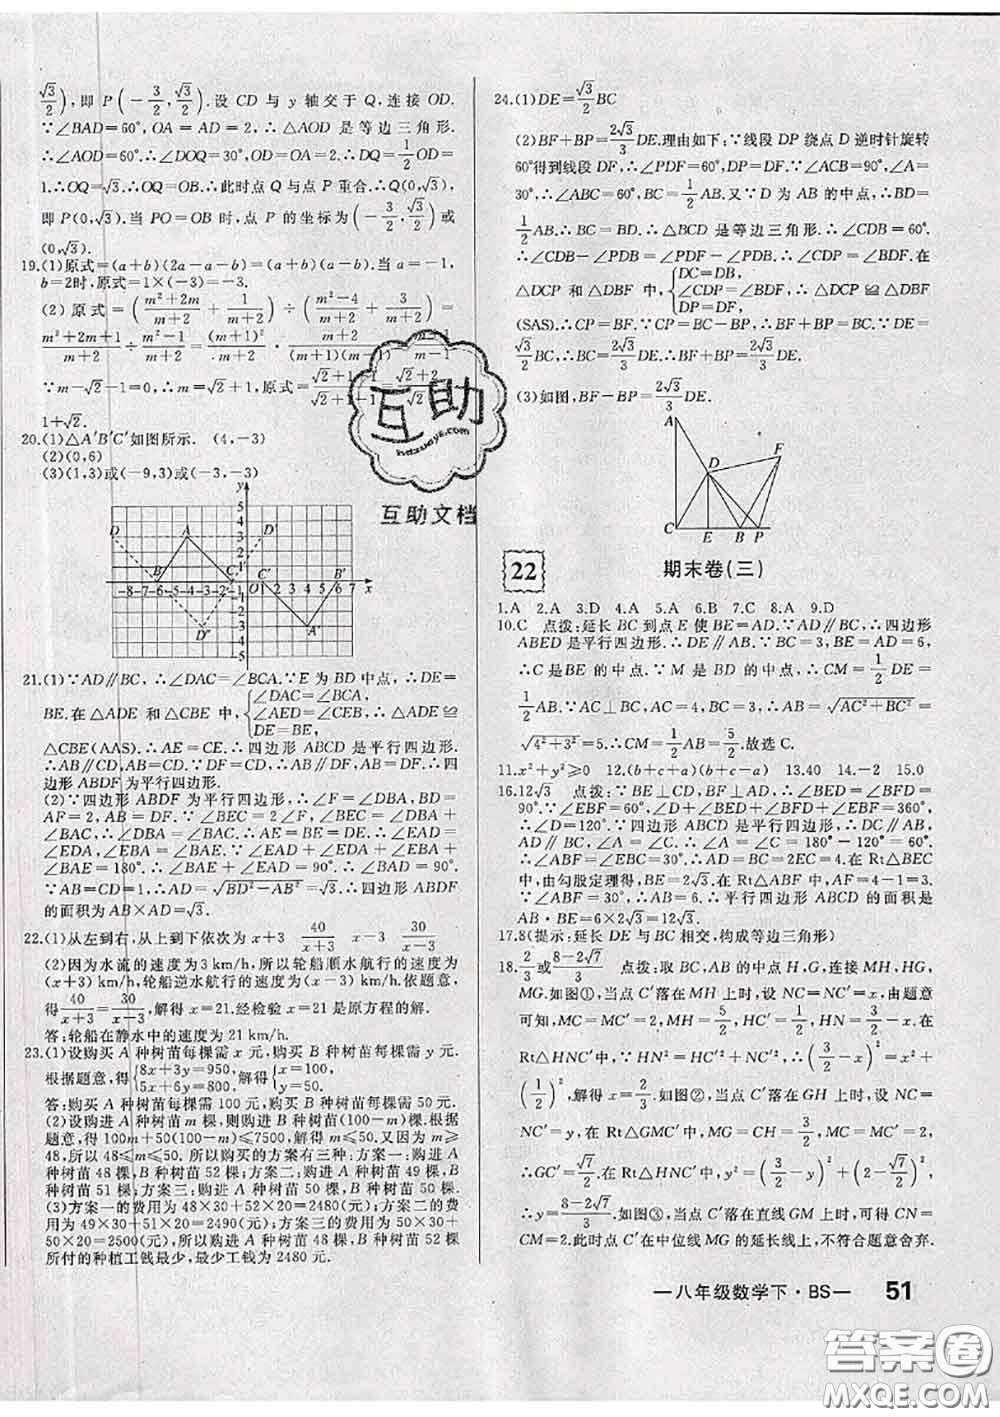 √3/2),即 P(-3/2,√3/2).设 CD 与 y 轴交于 Q,连接 OD.
∵∠BAD=60°,OA=AD=2,∴△AOD 是等边三角形.
∴∠AOD=60°.∴∠DOQ=30°,OD=OA=2.∴DQ=1/2OD=
1.∴OQ=√3.∴OB=OQ.∴此时点 Q 与点 P 重合.∴Q(0,√3).
即 P(0,√3).当 PO=OB 时,点 P 的坐标为(-3/2,√3/2)或
(0,√3).
19.(1)原式=(a+b)(2a-a-b)=(a+b)(a-b).当 a=-1,
b=2时,原式=1×(-3)=-3.
(2)原式=((m²+2m)/(m+2)+1/(m+2))÷((m²-4)/(m+2)+3/(m+2))=
(m²+2m+1)/(m+2)÷(m²-1)/(m+2)=(m+1)²/(m+2)·(m+2)/((m+1)(m-1))=(m+1)/(m-1).
∵m-√2-1=0,∴m=√2+1,原式=(√2+1+1)/(√2+1-1)=(√2+2)/√2=
1+√2.
20.(1)△A′B′C′如图所示. (4,-3)
(2)(0,6)
(3)(1,3)或(-9,3)或(-3,-3)
y
5
4
D A 3 D′
2
1
B C C′ B′
-8-7-6-5-4-3-2-1 O 1 2 3 4 5 6 7 x
D″ A′
5
21.(1)∵AD∥BC,∴∠DAC=∠BCA.∵E 为 BD 中点,∴DE=
BE.在△ADE 和△CBE 中,{∠DAC=∠BCA, ∠AED=∠CEB, DE=BE, ∴△ADE≌
△CBE(AAS).∴AE=CE.∴四边形 ABCD 是平行四边形.
∴AB∥CD,AB=CD.∵DF=CD,∴AB∥DF,AB=DF.∴四
边形 ABDF 为平行四边形.
(2)∵四边形 ABDF 为平行四边形,∴∠F=∠DBA,BD=
AF=2,AB∥DF.∵∠BEC=2∠F,∠BEC=∠DBA+
∠BAC,∴∠DBA=∠BAC.∵AB∥DF,∴∠EAD=
∠EDA,∠EBA=∠BAE.∵∠EAD+∠EDA+∠EBA+
∠BAE=180°.∴∠EAD+∠BAE=90°.∴∠BAD=90°.
∵AB=CD=1,∴AD=√BD²-AB²=√3.∴四边形 ABDF
的面积为 AB×AD=√3.
22.(1)从左到右,从上到下依次为 x+3 40/(x+3) x-3 30/(x-3)
(2)因为水流的速度为3 km/h,所以轮船顺水航行的速度为
(x+3) km/h,轮船逆水航行的速度为(x-3) km/h.依题意,
得40/(x+3)=30/(x-3),解得 x=21.经检验 x=21 是原方程的解.
答:轮船在静水中的速度为 21 km/h.
23.(1)设购买 A 种树苗每棵需 x 元,购买 B 种树苗每棵需 y 元.
根据题意,得{8x+3y=950, 5x+6y=800, 解得{x=100, y=50.
答:购买 A 种树苗每棵需 100 元,购买 B 种树苗每棵需 50 元.
(2)设购进 A 种树苗 m 棵,则购进 B 种树苗(100-m)棵.根据
题意,得 100m+50(100-m)≤7500,解得 m≤50.又因为 m≥
48,所以48≤m≤50.所以购买的方案有三种:方案一:购进 A
种树苗 48 棵,B 种树苗 52 棵;方案二:购进 A 种树苗 49 棵,B
种树苗 51 棵;方案三:购进 A 种树苗 50 棵,B 种树苗 50 棵.
(3)方案一的费用为 48×30+52×20=2480(元);方案二的费
用为 49×30+51×20=2490(元);方案三的费用为 50×30+
50×20=2500(元),所以购进 A 种树苗 48 棵,B 种树苗 52 棵
所付的种植工钱最少,最少工钱为 2480 元.
24.(1)DE=√3/2BC
(2)BF+BP=2√3/3DE.理由如下:∵线段 DP 绕点 D 逆时针旋转
60°得到线段 DF,∴∠PDF=60°,DP=DF.∵∠ACB=90°,∠A=
30°,∴∠ABC=60°,BC=1/2AB.又∵D 为 AB 的中点,∴BD=
1/2AB.∴BC=BD.∴△BCD 是等边三角形.∴∠CDB=60°.
∴∠CDB-∠PDB=∠PDF-∠PDB.∴∠CDP=∠BDF.在
△DCP 和△DBF 中,{DC=DB, ∠CDP=∠BDF, DP=DF, ∴△DCP≌△DBF
(SAS).∴CP=BF.∵CP=BC-BP,∴BF+BP=BC.∵DE=
√3/2BC,∴BC=2√3/3DE.∴BF+BP=2√3/3DE.
(3)如图,BF-BP=2√3/3DE.
A
D F
C E B P
22 期末卷(三)
1.A 2.A 3.D 4.A 5.A 6.B 7.C 8.A 9.D
10.C 点拨:延长 BC 到点 E 使 BE=AD.∵AD∥BC,∴四边形
ABED 是平行四边形.∴DE∥AB.∵BC=3,BE=AD=6,
∴C是BE 的中点.∵M 是 BD 的中点,∴CM=1/2DE=
1/2AB.∵AC⊥BC,AC=4,BC=3,∴AB=√AC²+BC²=
√4²+3²=5.∴CM=1/2AB=5/2.故选 C.
11.x²+y²≥0 12.(b+c+a)(b+c-a) 13.40 14.-2 15.0
16.12√3 点拨:∵BE⊥CD,BF⊥AD,∴∠BEC=∠BFD=
90°.∵∠EBF=60°,∠D+∠BED+∠BFD+∠EBF=360°,
∴∠D=120°.∵四边形 ABCD 是平行四边形,∴DC∥AB,
AD∥BC,∠A=∠C.∴∠A=∠C=180°-120°=60°.
∴∠ABF=∠EBC=30°.∴AD=BC=2EC=4.在 Rt△BEC
中,由勾股定理得,BE=2√3.在 Rt△ABF 中,AF=4-1=3.
∵∠ABF=30°,∴AB=6.∴平行四边形 ABCD 的面积是
AB·BE=6×2√3=12√3.
17.8(提示:延长 DE 与 BC 相交,构成等边三角形)
18.2/3或(8-2√7)/3 点拨:取 BC,AB 的中点 H,G,连接 MH,HG,
MG.如图①,当点 C′落在 MH 上时,设 NC=NC′=x,由题意
可知,MC=MC′=2,MH=5/2,HC′=1/2,HN=3/2-x.在
Rt△HNC′中,∵HN²=HC′²+NC′²,∴(3/2-x)²=x²+
(1/2)²,解得 x=2/3;如图②,当点 C′落在 GH 上时,设 NC=
NC′=y,在 Rt△GMC′中,MG=CH=3/2,MC=MC′=2,
∴GC′=√7/2.在 Rt△HNC′中,y²=(3/2-y)²+(2-√7/2)²,
∴y=(8-2√7)/3.如图③,当点 C′落在直线 GM 上时,可得 CN=
CM=2.此时点 C′在中位线 MG 的延长线上,不符合题意舍弃.
—八年级数学下·BS— 51
互助
hdzuoye.com
互助文档
答案圈
MXQE.COM